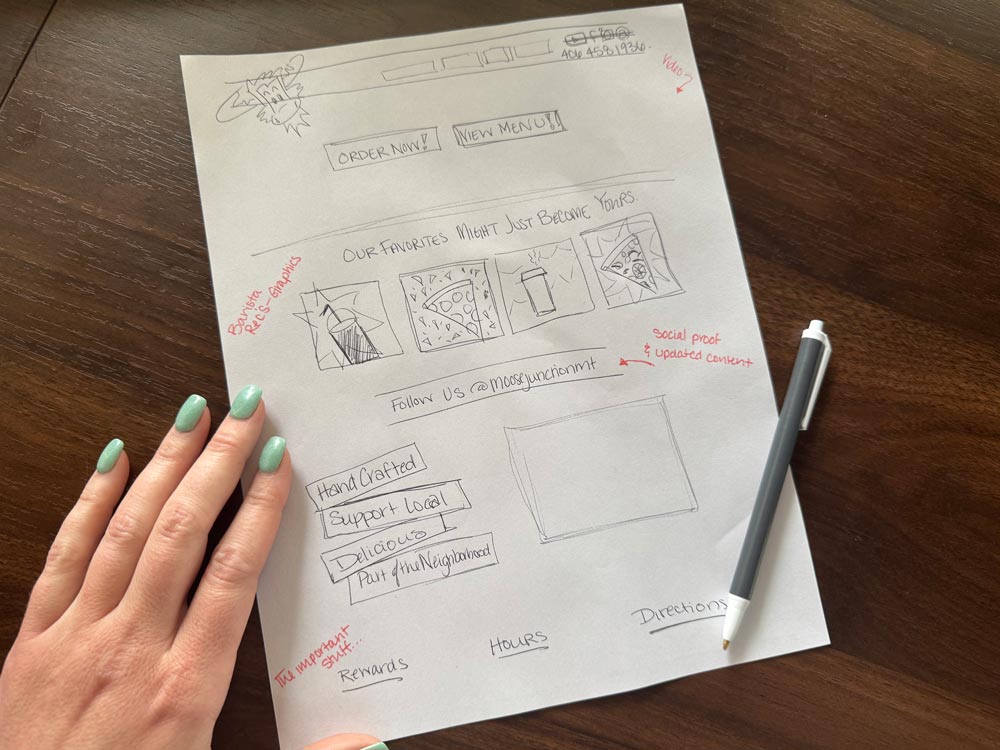 406 458 1936.
Video?
ORDER NOW!
VIEW MENU!!
OUR FAVORITES MIGHT JUST BECOME YOURS.
Barista
Rec's-Graphics
Social proof
& updated content
Follow Us @moosejunctionmt
Hand Crafted
Support Local
Delicious
Part of the Neighborhood
The important
stuff...
Rewards
HOURS
Directions